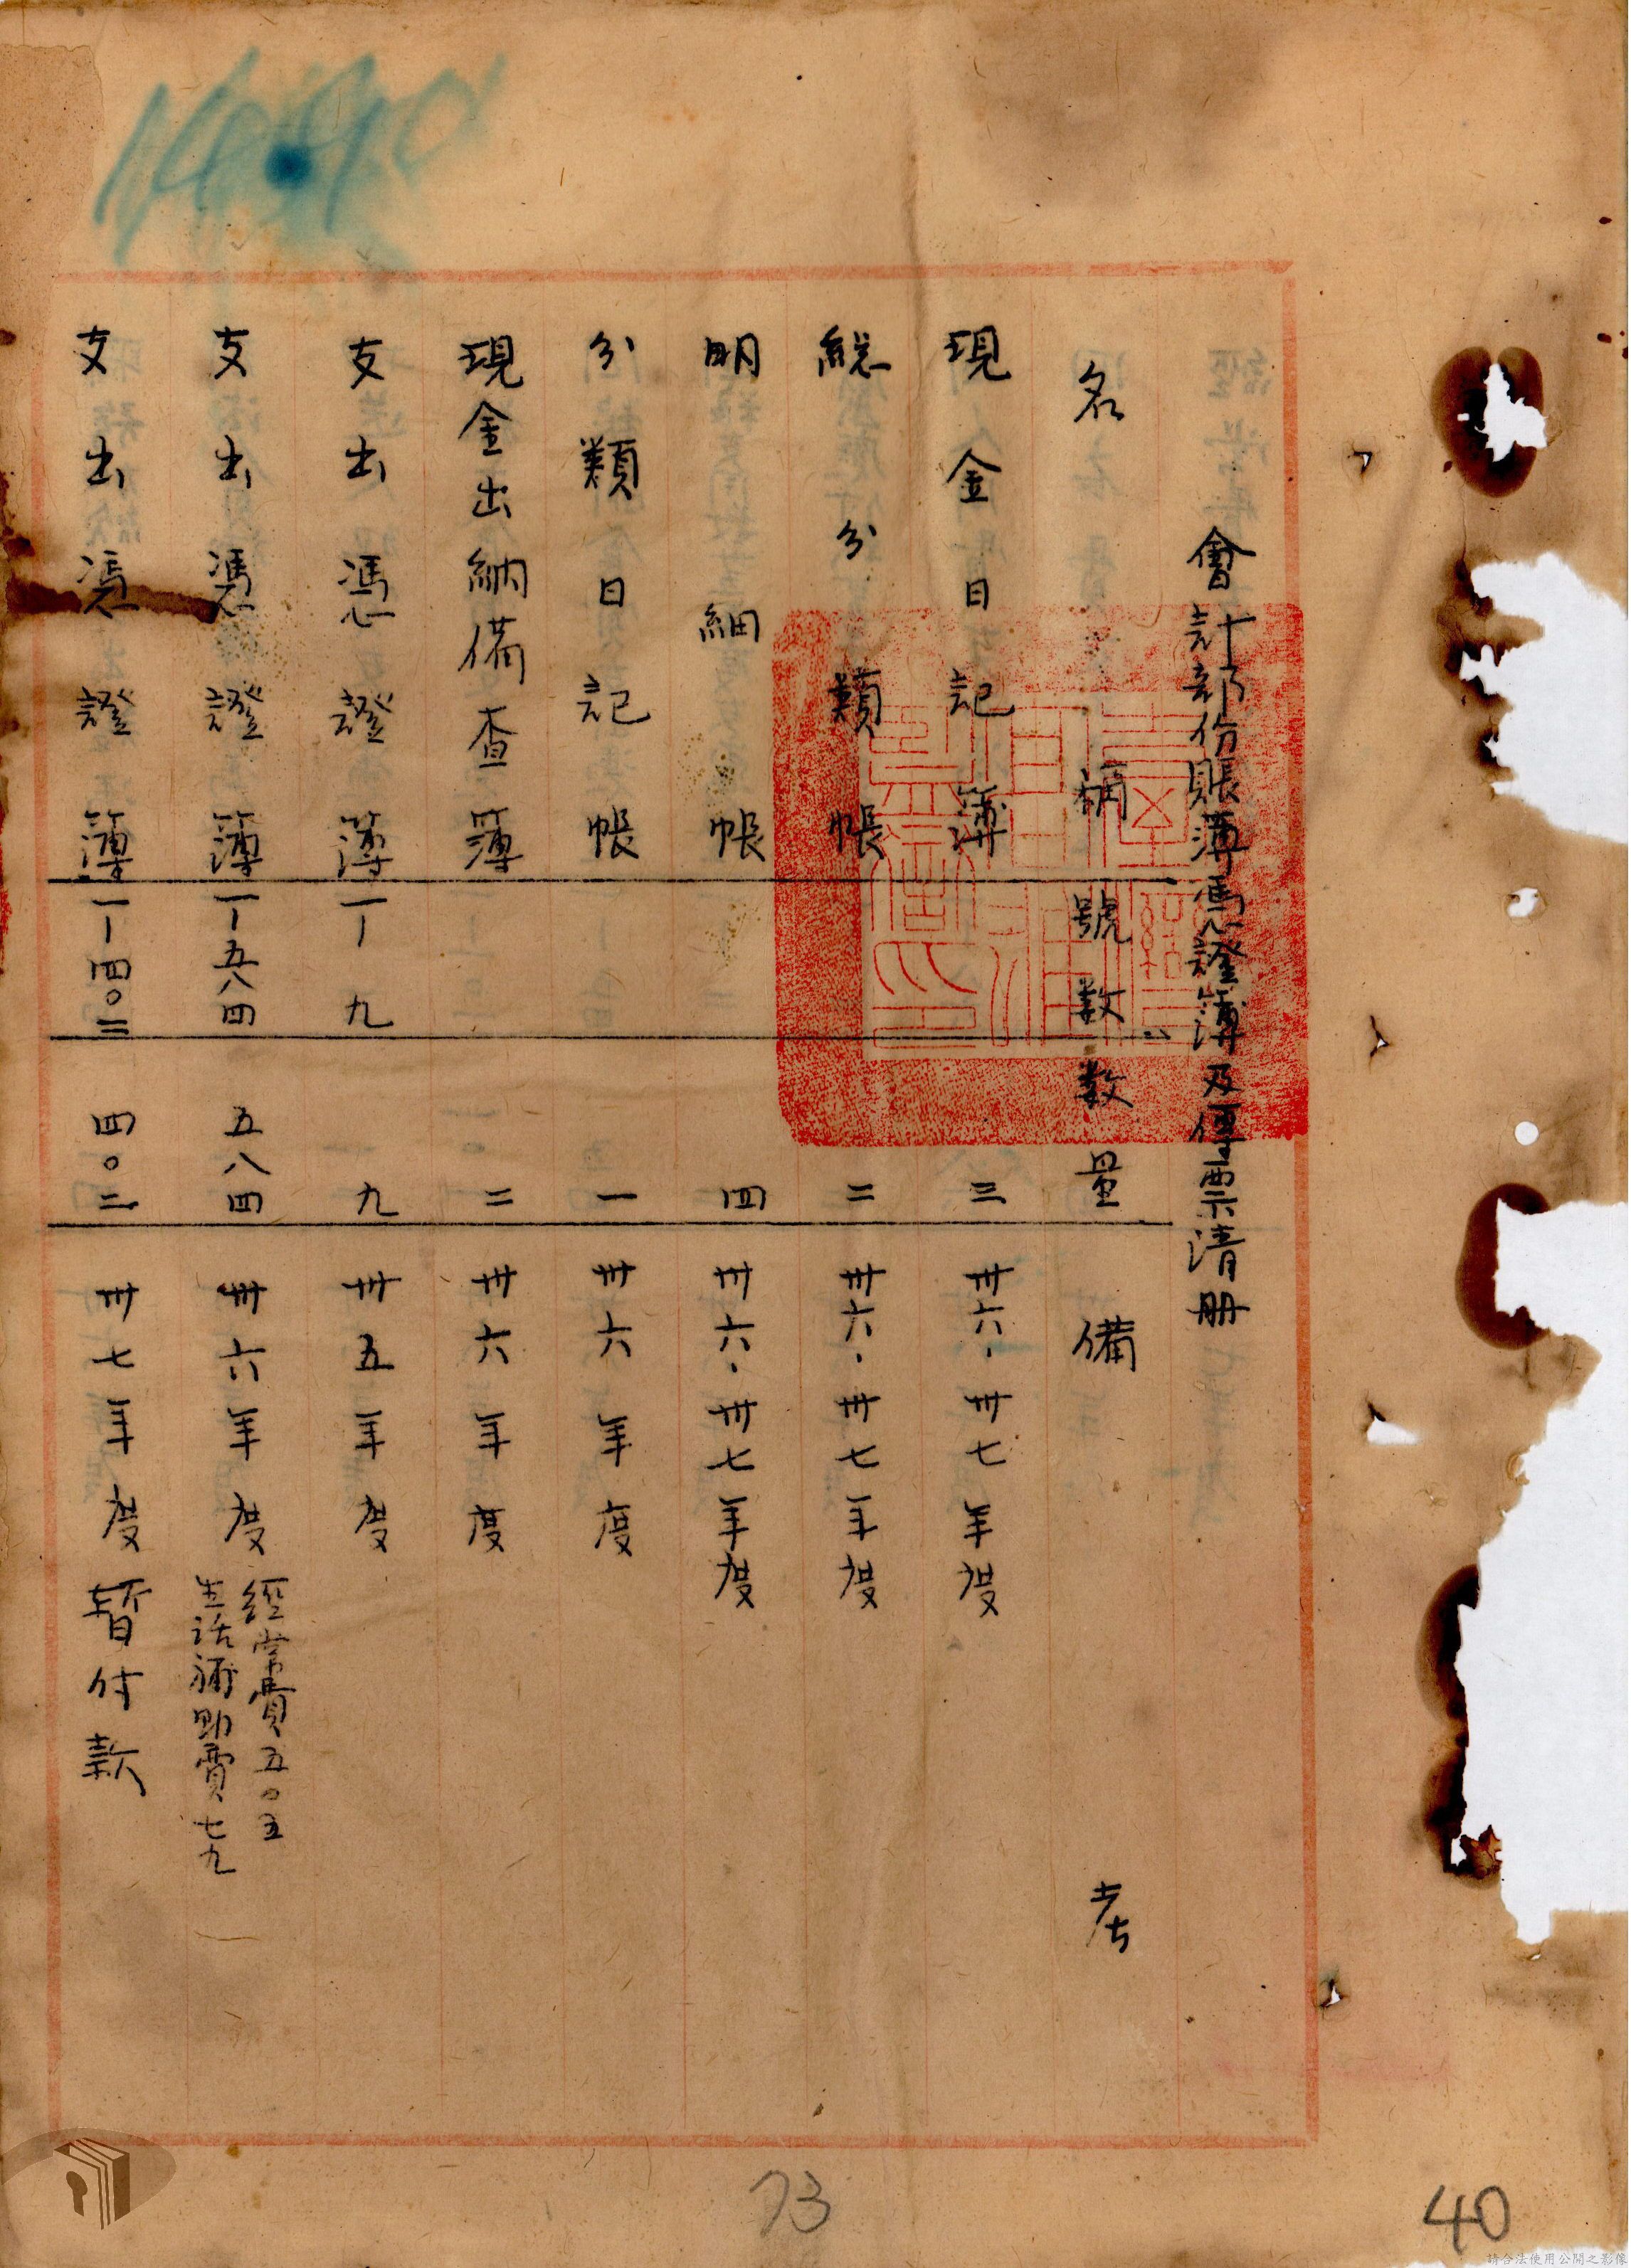 會計部份賬簿憑證簿及傳票清册
名稱 號数 数量 備考
現金日記簿 三 卅六、卅七年度
総分類帳 二 卅六、卅七年度
明細帳 四 卅六、卅七年度
分類日記帳 一 卅六年度
現金出納備查簿 二 卅六年度
支出憑證簿 一—九 九 卅五年度
支出憑證簿 一—五八四 五八四 卅六年度 經常費五〇五
生活補助費七九
支出憑證簿 一—四〇二 四〇二 卅七年度暫付款
73
40
請合法使用公開之影像